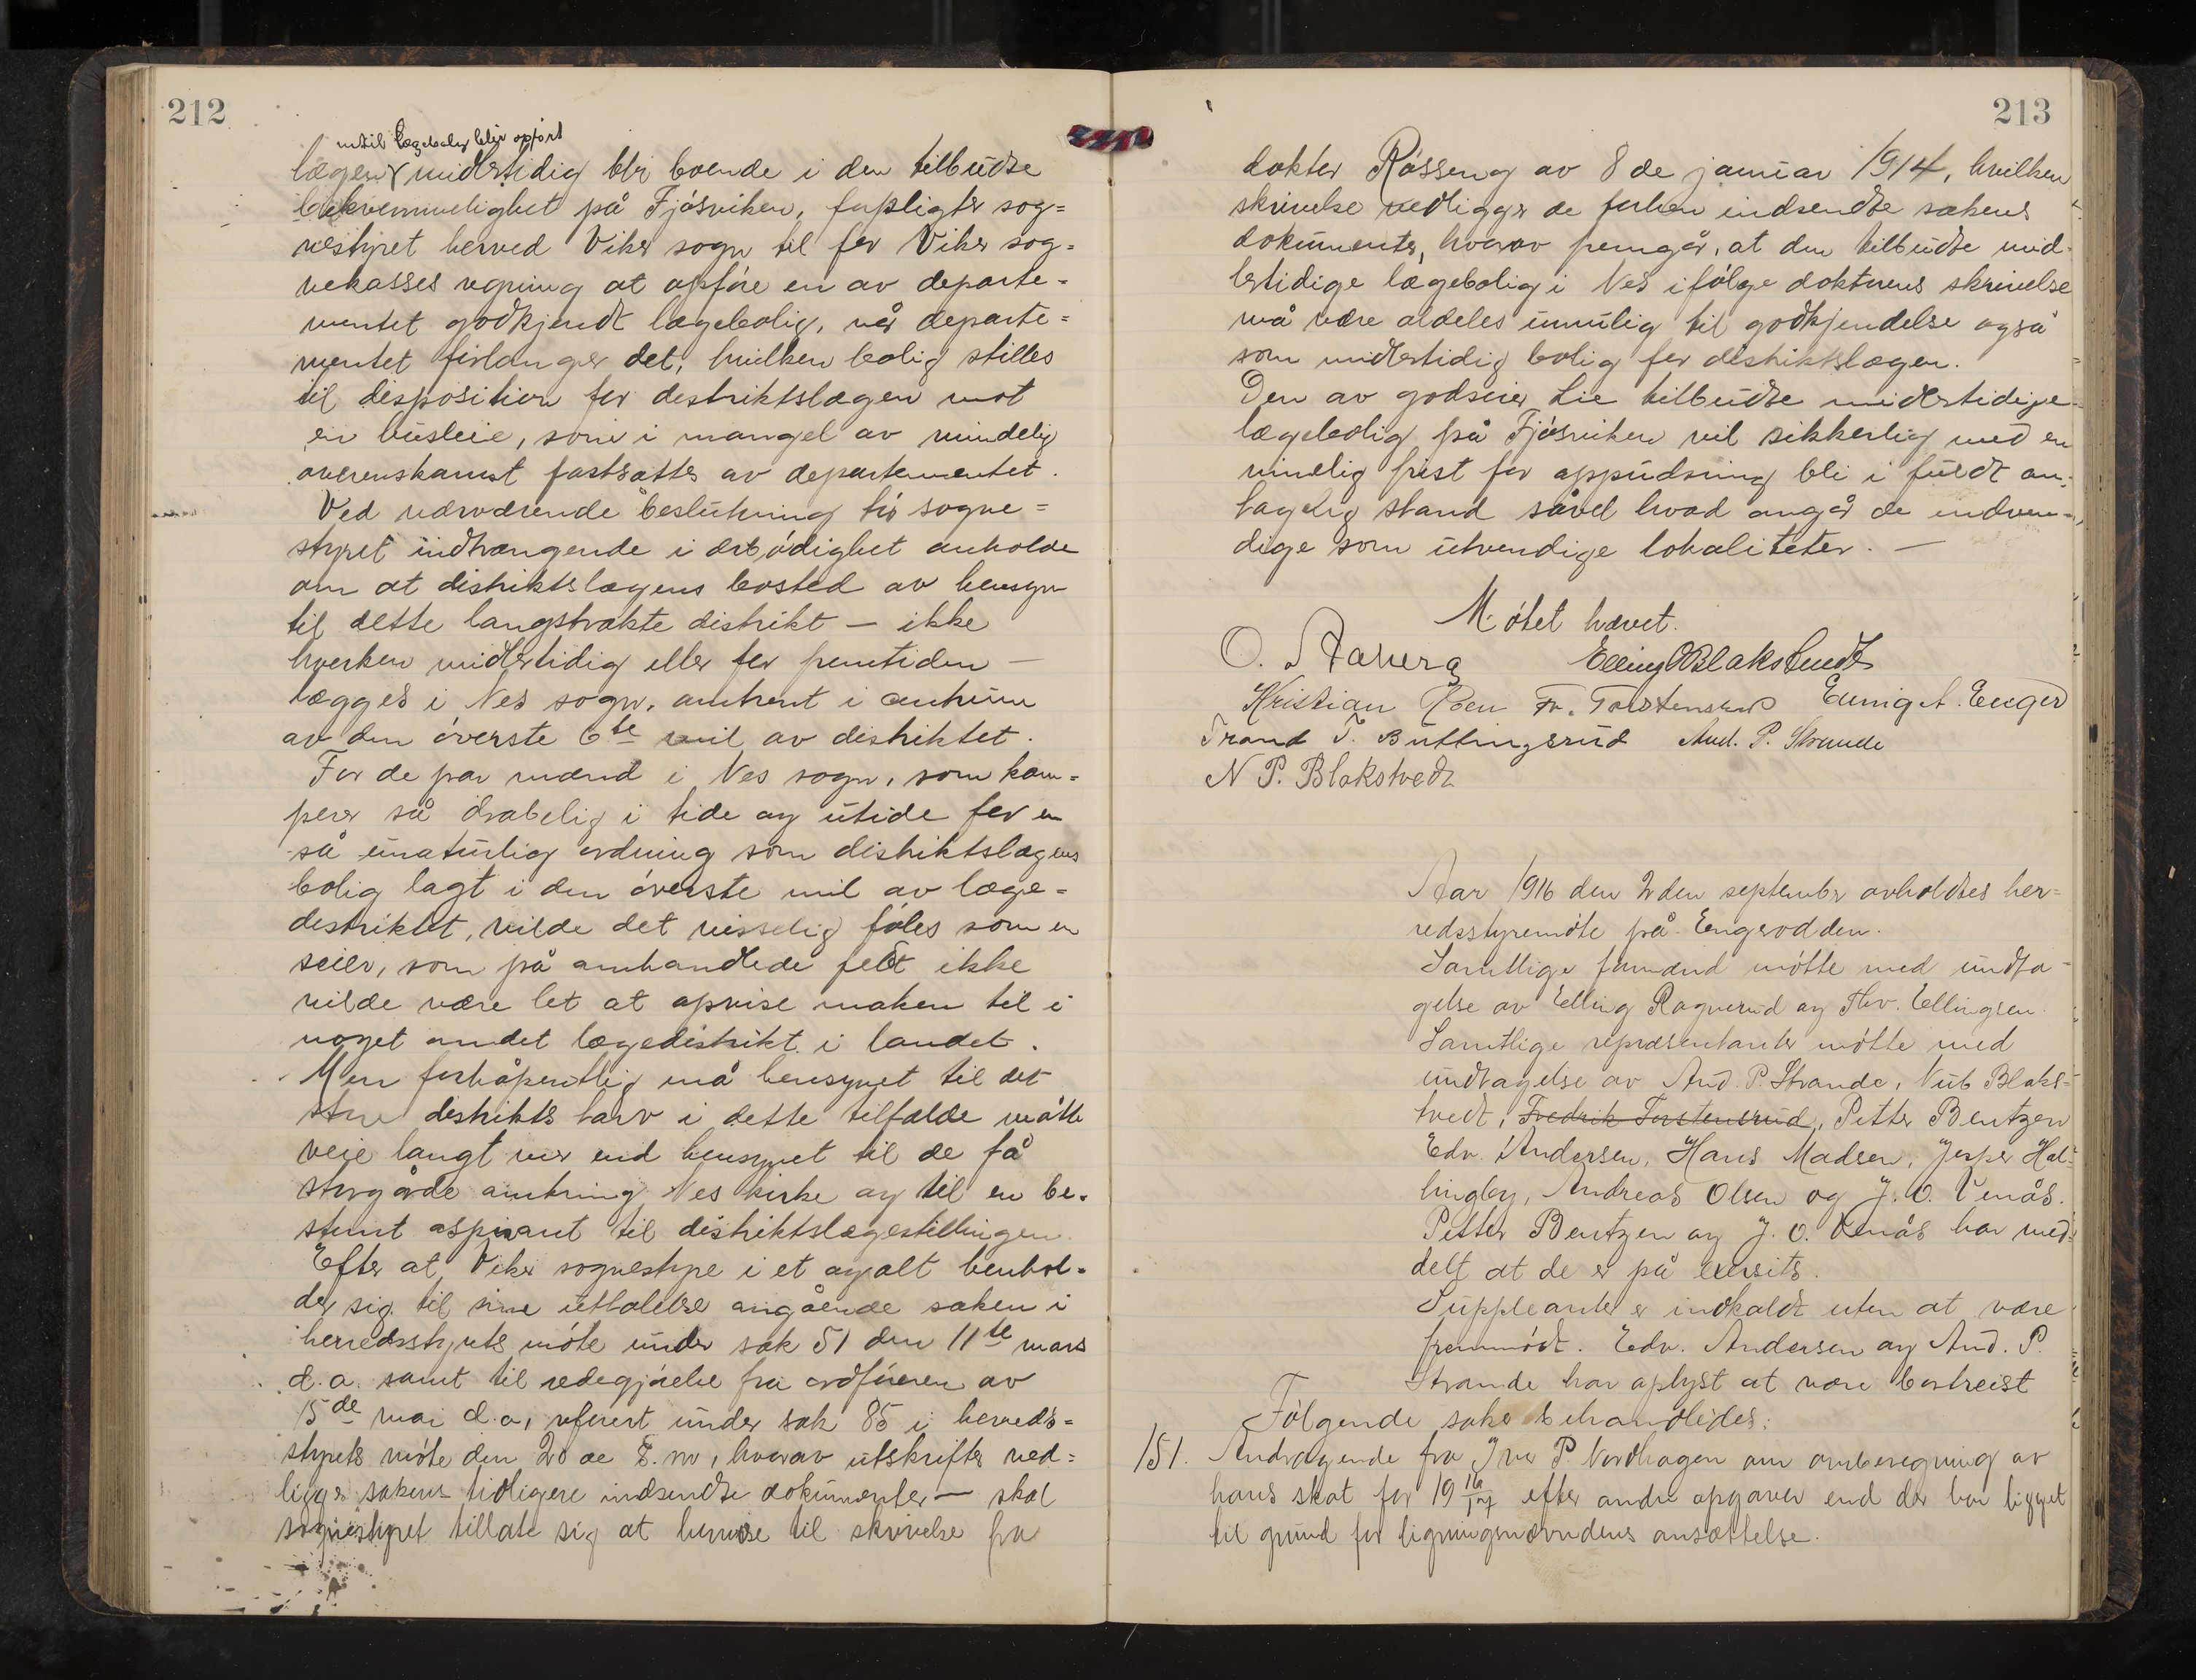 212
indtil lægebolig blir opført
lægen midlertidig bli boende i den tilbudte
bekvemmelighet på Fjøsviken, forpligter sog=
nestyret herved Viker sogn til for Viker sog=
nekasses regning at opføre en av departe=
mentet godkjendt lægebolig, når departe=
mentet forlanger det, hvilken bolig stilles
til disposition for destriktslægen mot
en husleie, som i mangel av mindelig
overenskomst fastsættes av departementet.
Ved nærværende beslutning tør sogne=
styret indtrængende i ærbødighet anholde
om at distriktslægens bosted av hensyn
til dette langstrakte distrikt — ikke
hverken midlertidig eller for fremtiden —
lægges i Nes sogn, omtrent i centrum
av den øverste 6te mil av distriktet.
For de par mænd i Nes sogn, som kjæm=
per så drabelig i tide og utide for en
så unaturlig ordning som distriktslægens
bolig lagt i den øverste mil av læge=
destriktet, vilde det visselig føles som en
seier, som på omhandlede felt ikke
vilde være let at opvise maken til i
noget andet lægedistrikt i landet.
Men forhåpentlig må hensynet til det
store distrikts tarv i dette tilfælde måtte
veie langt mer end hensynet til de få
storgårde omkring Nes kirke og til en be=
stemt aspirant til distriktslægestillingen.
Efter at Viker sognestyre i et og alt henhol=
der sig til sine uttalelser angående saken i
herredsstyrets møte under sak 51 den 11te mars
d.a. samt til redegjørelse fra ordføreren av
15de mai d.a, referert under sak 85 i herreds=
styrets møte den 20de s.m, hvorav utskrifter ved=
ligger sakens tidligere indsendte dokumenter — skal
sognestyret tillate sig at henvise til skrivelse fra
213
doktor Røsseng av 8de januar 1914, hvilken
skrivelse vedligger de forhen indsendte sakens
dokumenter, hvorav fremgår, at den tilbudte mid=
lertidige lægebolig i Nes ifølge doktorens skrivelse
må være aldeles umulig til godkjendelse også
som midlertidig bolig for distriktslægen.
Den av godseier Lie tilbudte midlertidige
lægebolig på Fjøsviken vil sikkerlig med en
rimelig frist for oppudsning bli i fuldt an=
tagelig stand såvel hvad angår de indven=
dige som utvendige lokaliteter. —
Møtet hævet.
O. Aaberg Elling O Blakstvedt
Kristian Roen Fr. Torstensrud Enger
Trond T. Buttingsrud And. P. Strande
N P. Blakstvedt
Aar 1916 den 2den september avholdtes her=
redsstyremøte på Engerodden.
Samtlige formænd møtte med undta=
gelse av Elling Ragnerud og Thv. Ellingsen.
Samtlige repræsentanter møtte med
undtagelse av And. P. Strande, Nub Blaks=
tvedt, Fredrik Torstensrud, Petter Bentzen
Edv. Andersen, Hans Madsen, Jesper Hal=
lingby, Andreas Olsen og J. O. Venås.
Petter Bentzen og J. O. Venås har med=
delt at de er på exersits.
Suppleanter er indkaldt uten at være
fremmødt. Edv. Andersen og And. P.
Strande har oplyst at være bortreist
Følgende saker behandledes:
151. Andragende fra Iver P. Nordhagen om omberegning av
hans skat for 19 16/17 efter andre opgaver end der har ligget
til grund for ligningsnævndens ansættelse.